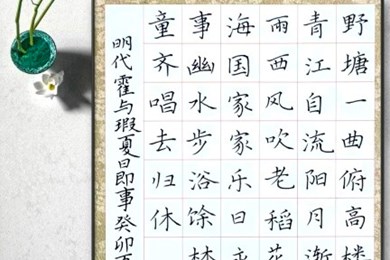 野塘一曲俯高楼
青江自流阳月渐
雨西风吹老稻花
海国家家乐日
事幽水步浴馀
童齐唱去归休
明代霍与瑕夏日即事癸卯